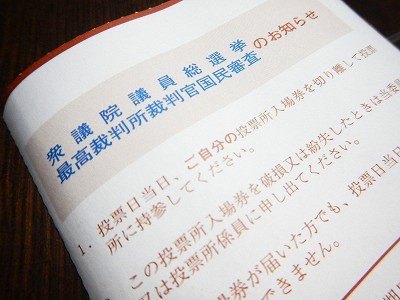 衆議院議員総選挙
最高裁判所裁判官国民審査
のお知らせ
1. 投票日当日、ご自分の投票所入場券を切り離して投票
所に持参してください。
この投票所入場券を破損又は紛失したときは
又は投票所係員に申し出てください。
券が届いた方でも、投票日当日
できません。